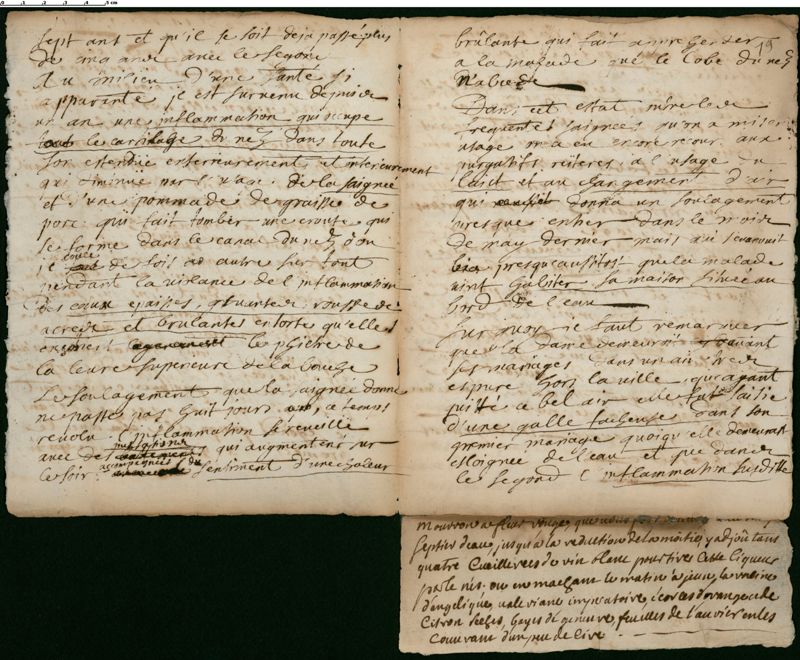 sept ans et qu'il se soit deja passé plus
de ma année avec le second
Au milieu d'une santé si
apparante il est survenu depuis
un an une inflammation qui occupe
tout le cartilage du nez dans toute
son estendüe exterieurement, et interieurement
qui diminue par l'usage de la saignée
et d'une pommade de graisse de
porc qui fait tomber une croute qui
se forme dans le canal du nez d'ou
il coule de fois a autre sur tout
pendant la violance de l'inflammation
des eaux epaisses, gluantes rousses
acres et brulantes en sorte qu'elles
le philtre de
la levre superieure de la bouche
Le soulagement que la saignée donne
ne passe pas huit jours, ce temps
revolu l'inflammation se reveille
avec des pulsations qui augmentent sur
le soir accompagnées du sentiment d'une chaleur
19
brûlante qui fait apprehender
a la malade que le lobe du nez
n'abcede
Dans cet estat outre les
frequentes saignées qu'on a mis en
usage on a eu encore recours aux
purgatifs reiterés, a l'usage du
laict et au changement d'air
qui donna un soulagement
presque entier dans le mois
de may dernier mais qui s'evanouit
presqu'aussitost que la malade
vint habiter sa maison située au
bord de l'eau
sur quoy il faut remarquer
que la dame demeuroit avant
ses mariages dans un air
et pure hors la ville, qu'ayant
quitté ce bel air elle fut saisie
d'une galle facheuse dans son
premier mariage quoiqu'elle demeurast
esloignée de l'eau et que dans
le second l'inflammation susdite
mouron a fleur rouge, que vous
septier d'eau, jusqu'à la reduction de la moitié, y adjoutans
quatre cueillerées de vin blanc pour tirer cette liqueur
par le nés. ou en machant le matin à jeun, la racine
d'angelique, valeriane imperatoire, ecorces d'orange et de
citron seches, bayes de genievre, feuilles de l'auvier en les
couvrant d'un peu de cire.